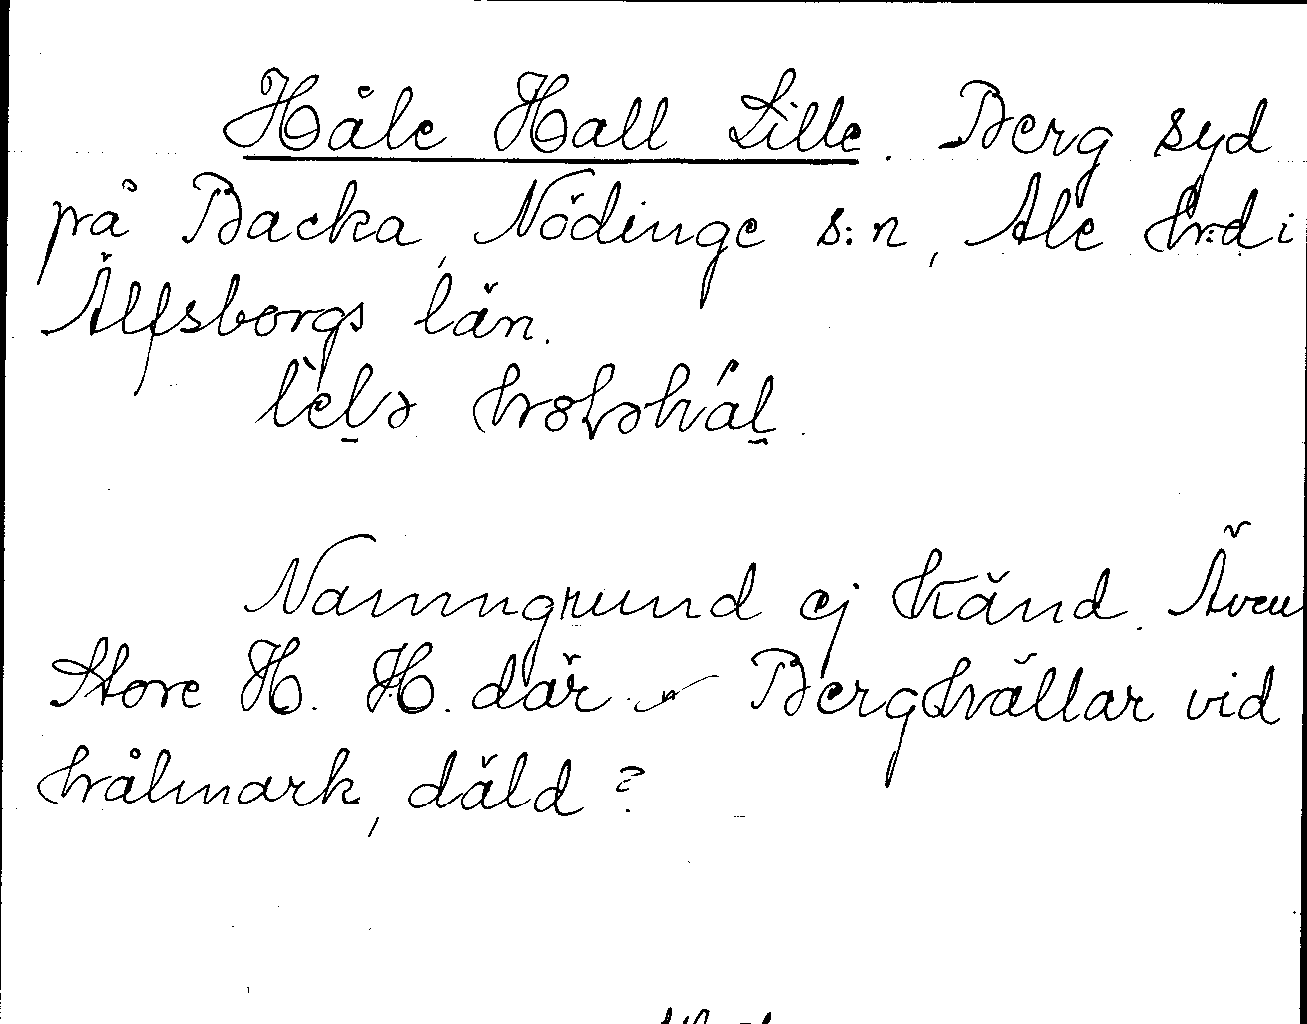 Håle Hall Lille. Berg syd
på Backa, Nödinge s:n, Ale h:d i
Älfsborgs län.
Namngrund ej känd. Även
Store H. H. där. Berghällar vid
hålmark, däld?